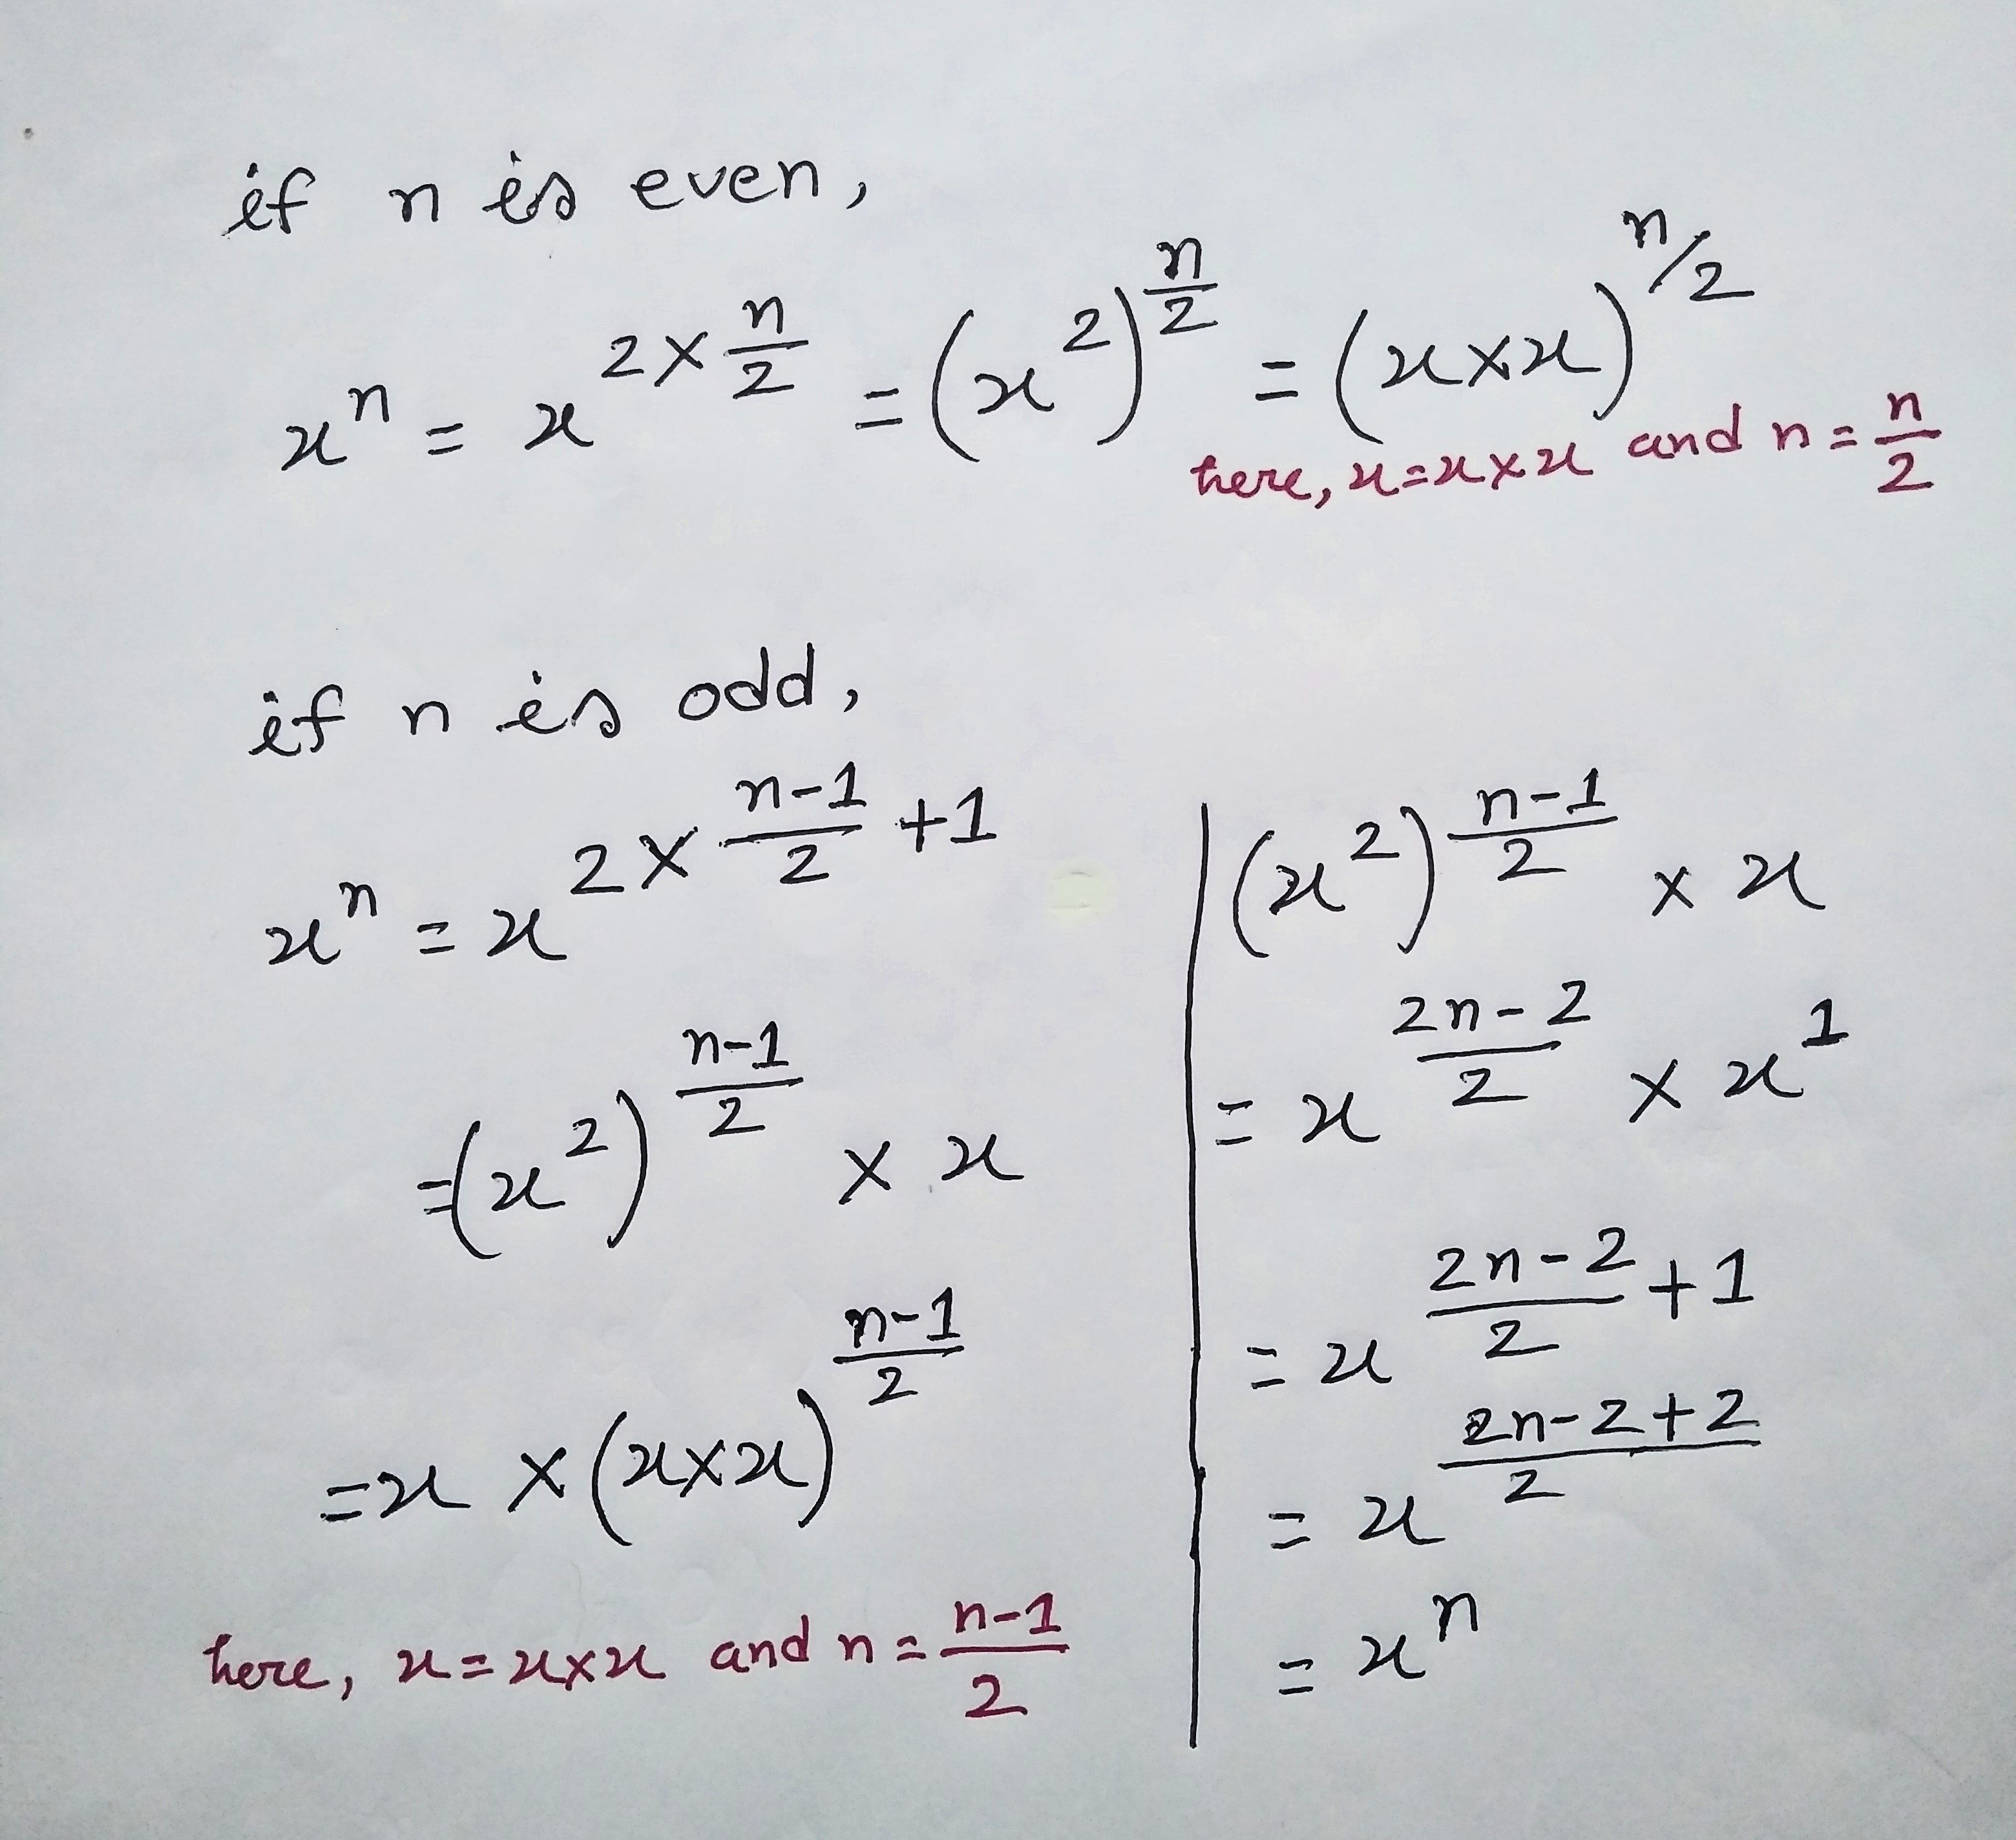 if n is even,
x^n = x^(2 × n/2) = (x^2)^(n/2) = (x×x)^(n/2)
here, x=x×x and n=n/2
if n is odd,
x^n = x^(2 × (n-1)/2 + 1)
=(x^2)^((n-1)/2) × x
=x × (x×x)^((n-1)/2)
here, x=x×x and n=(n-1)/2
(x^2)^((n-1)/2) × x
= x^((2n-2)/2) × x^1
= x^((2n-2)/2 + 1)
= x^((2n-2+2)/2)
= x^n